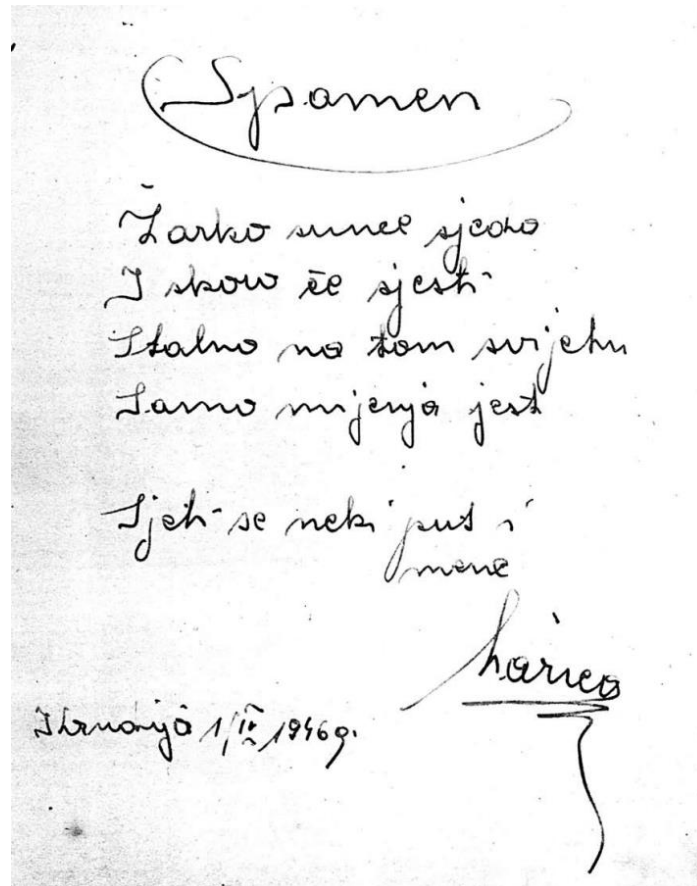 Spomen
Žarko sunce sjeda
I skoro će sjesti
Stalno na tom svijetu
Samo mijenja jest
Sjeti se neki put i
mene
1/IV 1946 g.